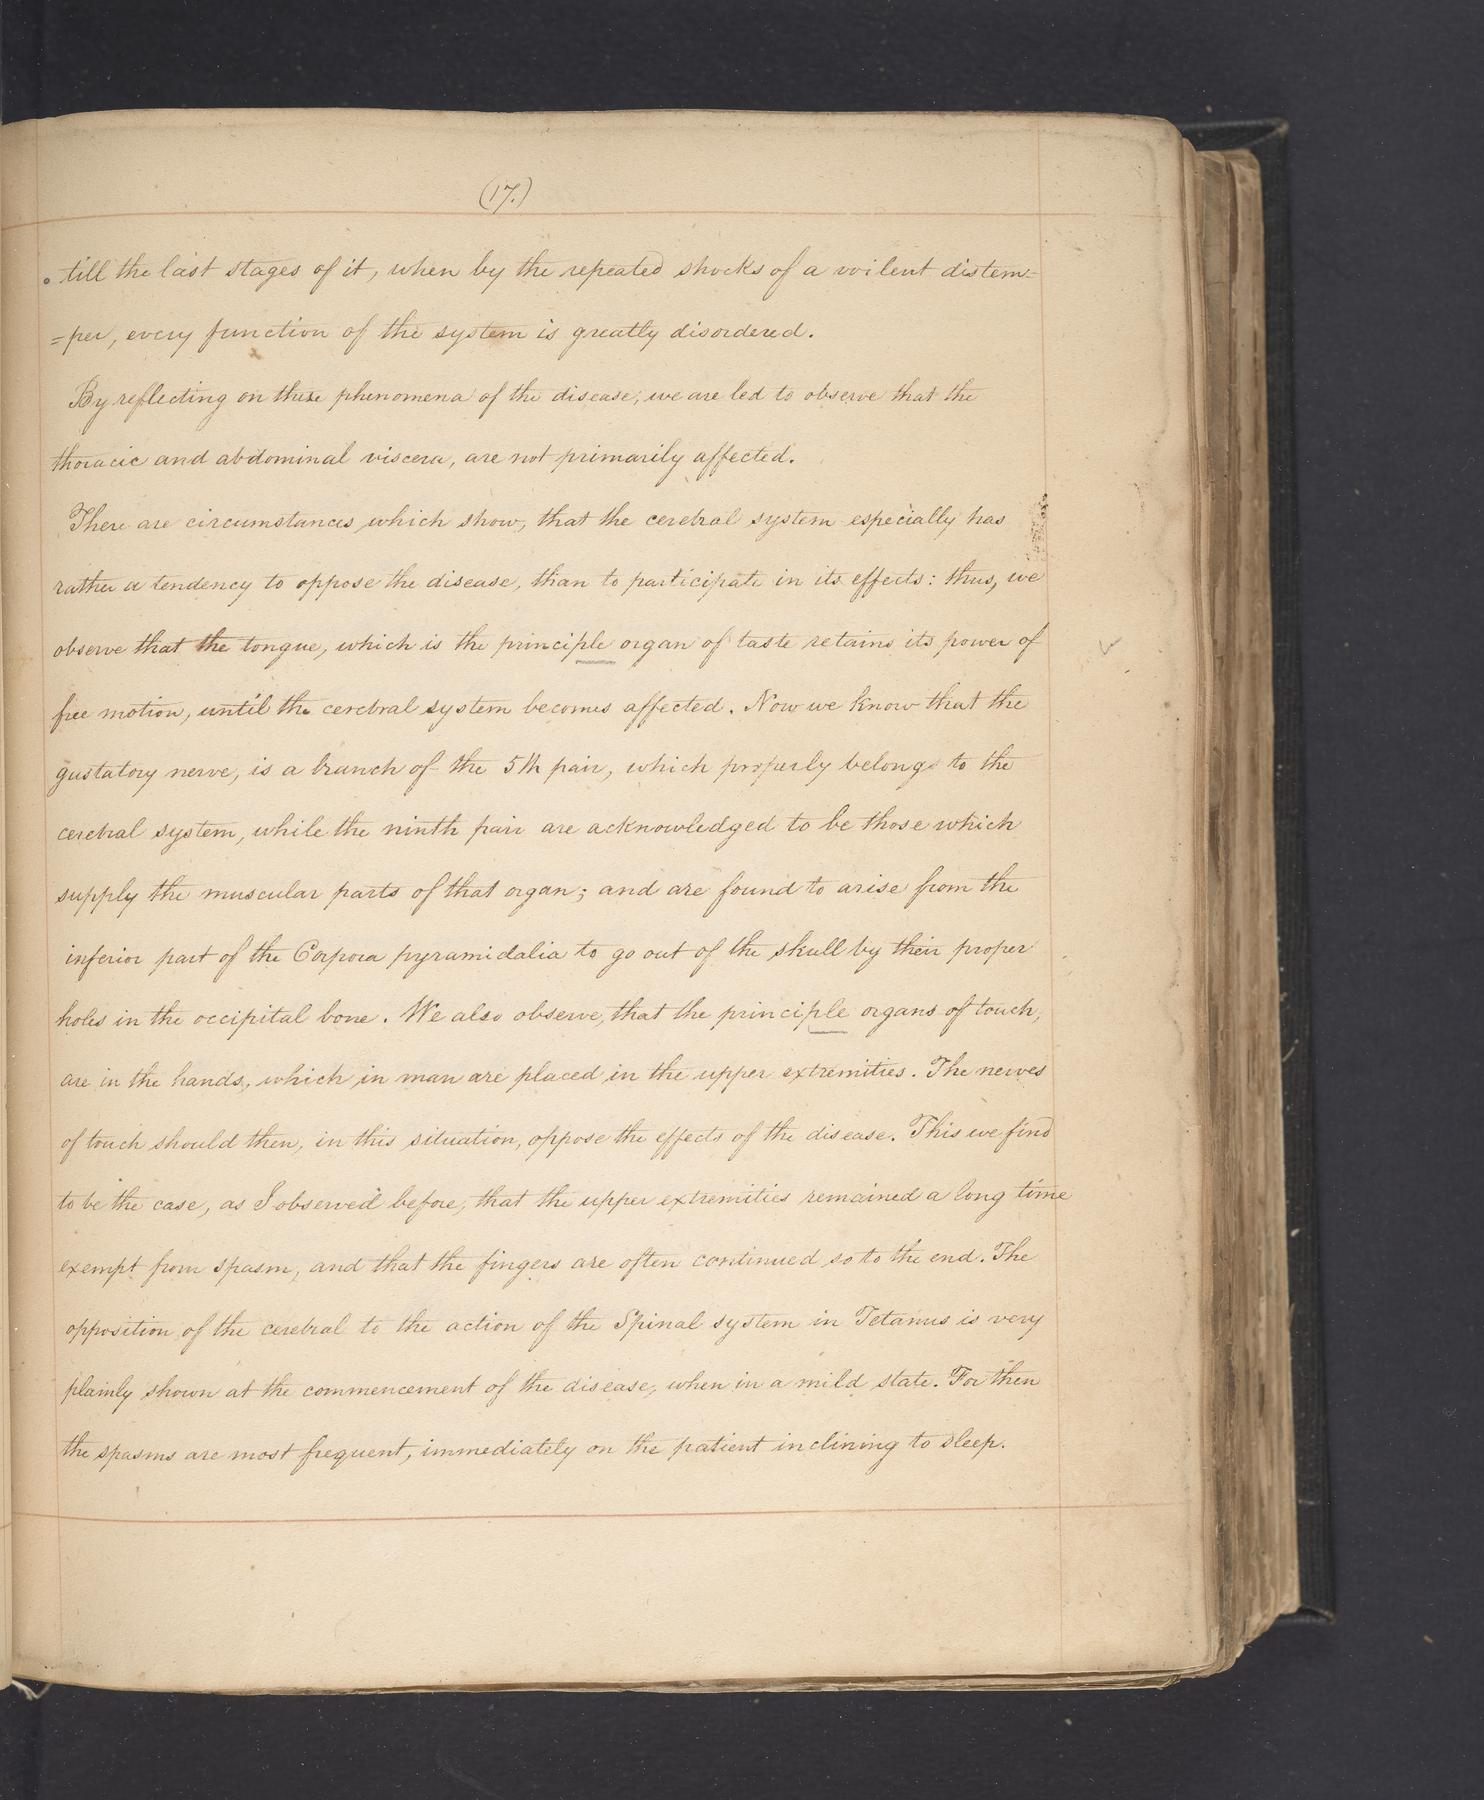 (17.)
till the last stages of it, when by the repeated shocks of a voilent distem=
=per, every function of the system is greatly disordered.
By reflecting on these phenomena of the disease, we are led to observe that the
thoracic and abdominal viscera, are not primarily affected.
There are circumstances which show, that the cerebral system especially has
rather a tendency to oppose the disease, than to participate in its effects: thus, we
observe that the tongue, which is the principle organ of taste retains its power of
free motion, until the cerebral system becomes affected. Now we know that the
gustatory nerve, is a branch of the 5th pair, which properly belongs to the
cerebral system, while the ninth pair are acknowledged to be those which
supply the muscular parts of that organ; and are found to arise from the
inferior part of the Corpora pyramidalia to go out of the skull by their proper
holes in the occipital bone. We also observe, that the principle organs of touch,
are in the hands, which in man are placed in the upper extremities. The nerves
of touch should then, in this situation, oppose the effects of the disease. This we find
to be the case, as I observed before, that the upper extremities remained a long time
exempt from spasm, and that the fingers are often continued so to the end. The
opposition of the cerebral to the action of the Spinal system in Tetanus is very
plainly shown at the commencement of the disease, when in a mild state. For then
the spasms are most frequent, immediately on the patient inclining to sleep.